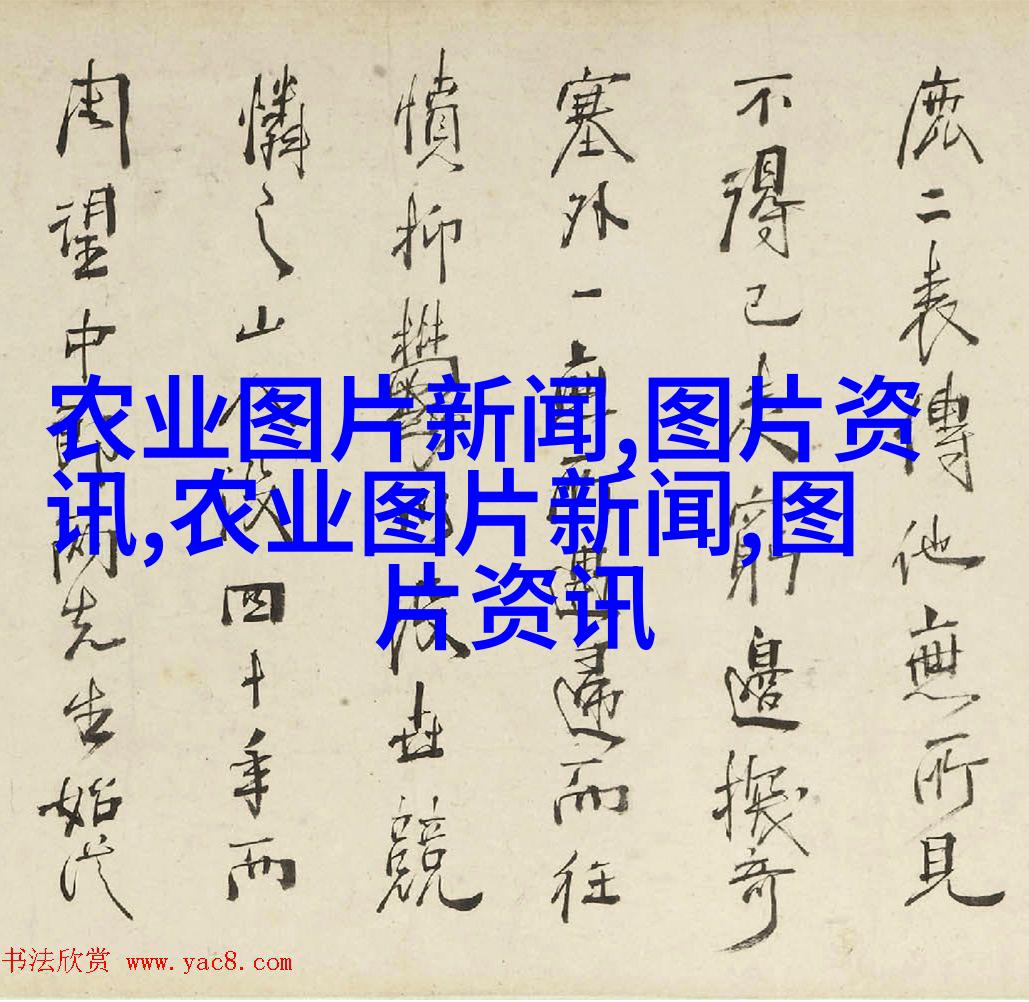 农业图片新闻,图片资
讯,农业图片新闻,图
片资讯
鹿二表傳他無所見
不得已走窮邊奇
塞外一而往
憤抑鬱後世競
憐之山人沒四十年而
周望中郎先生始從
书法欣赏 www.yac8.com